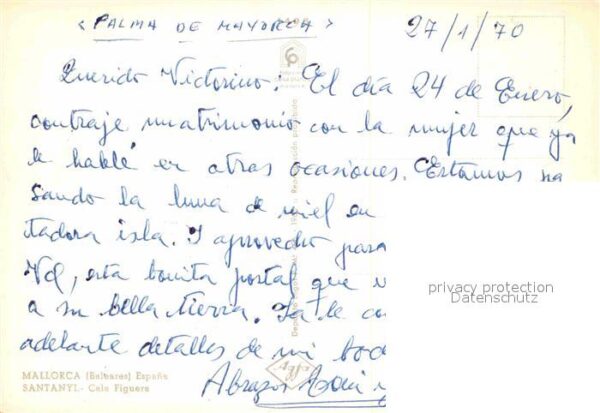 < PALMA DE MAYORCA >
27/1/70
Querido Victorino: El día 24 de Enero,
contraje matrimonio con la mujer que ya
le hablé en otras ocasiones. Estamos pa
sando la luna de miel en
tadora isla. Y aprovecho para
Vd, esta bonita postal que
a su bella tierra. Ya le
adelante detalles de mi bod
Abrazos
privacy protection
Datenschutz
MALLORCA (Baleares) España
SANTANYI.- Cala Figuera